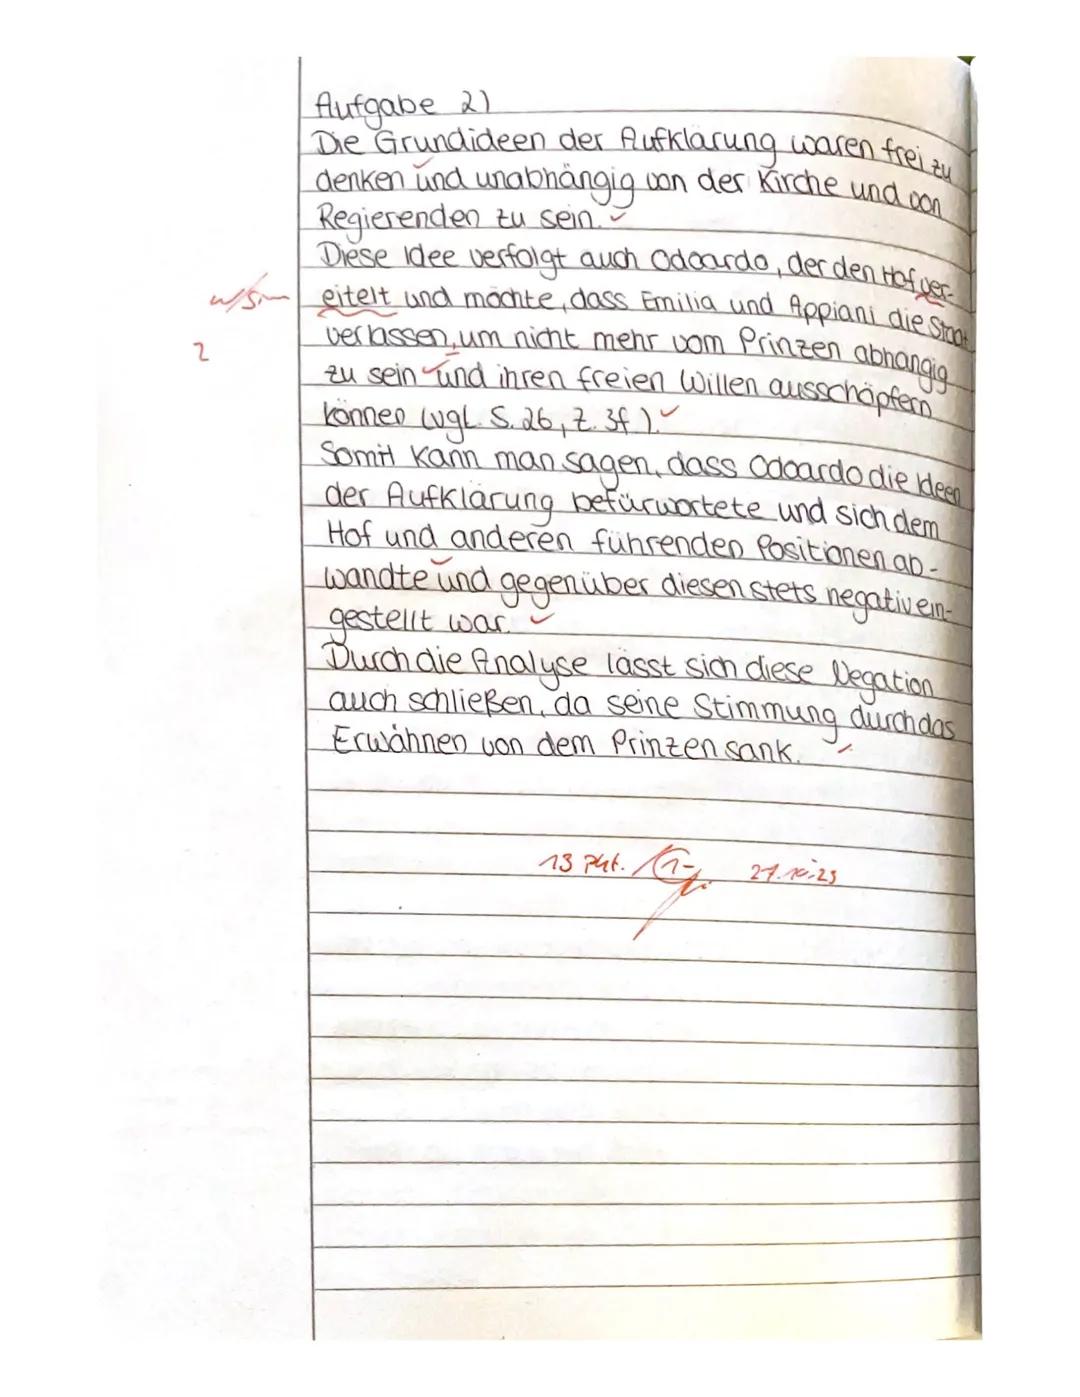 Aufgabe 2)
Die Grundideen der Aufklärung waren frei zu
denken und unabhängig von der Kirche und von
Regierenden zu sein.
Diese Idee verfolgt auch Odoardo, der den Hof ver-
eitelt und möchte, dass Emilia und Appiani die Stadt
verlassen, um nicht mehr vom Prinzen abhängig
zu sein und ihren freien Willen ausschöpfern
können (vgl. S. 26, Z. 3f.).
Somit kann man sagen, dass Odoardo die Ideen
der Aufklärung befürwortete und sich dem
Hof und anderen führenden Positionen ab-
wandte und gegenüber diesen stets negativ ein-
gestellt war.
Durch die Analyse lässt sich diese Negation
auch schließen, da seine Stimmung durch das
Erwähnen von dem Prinzen sank.
13 Pkt. / 1-